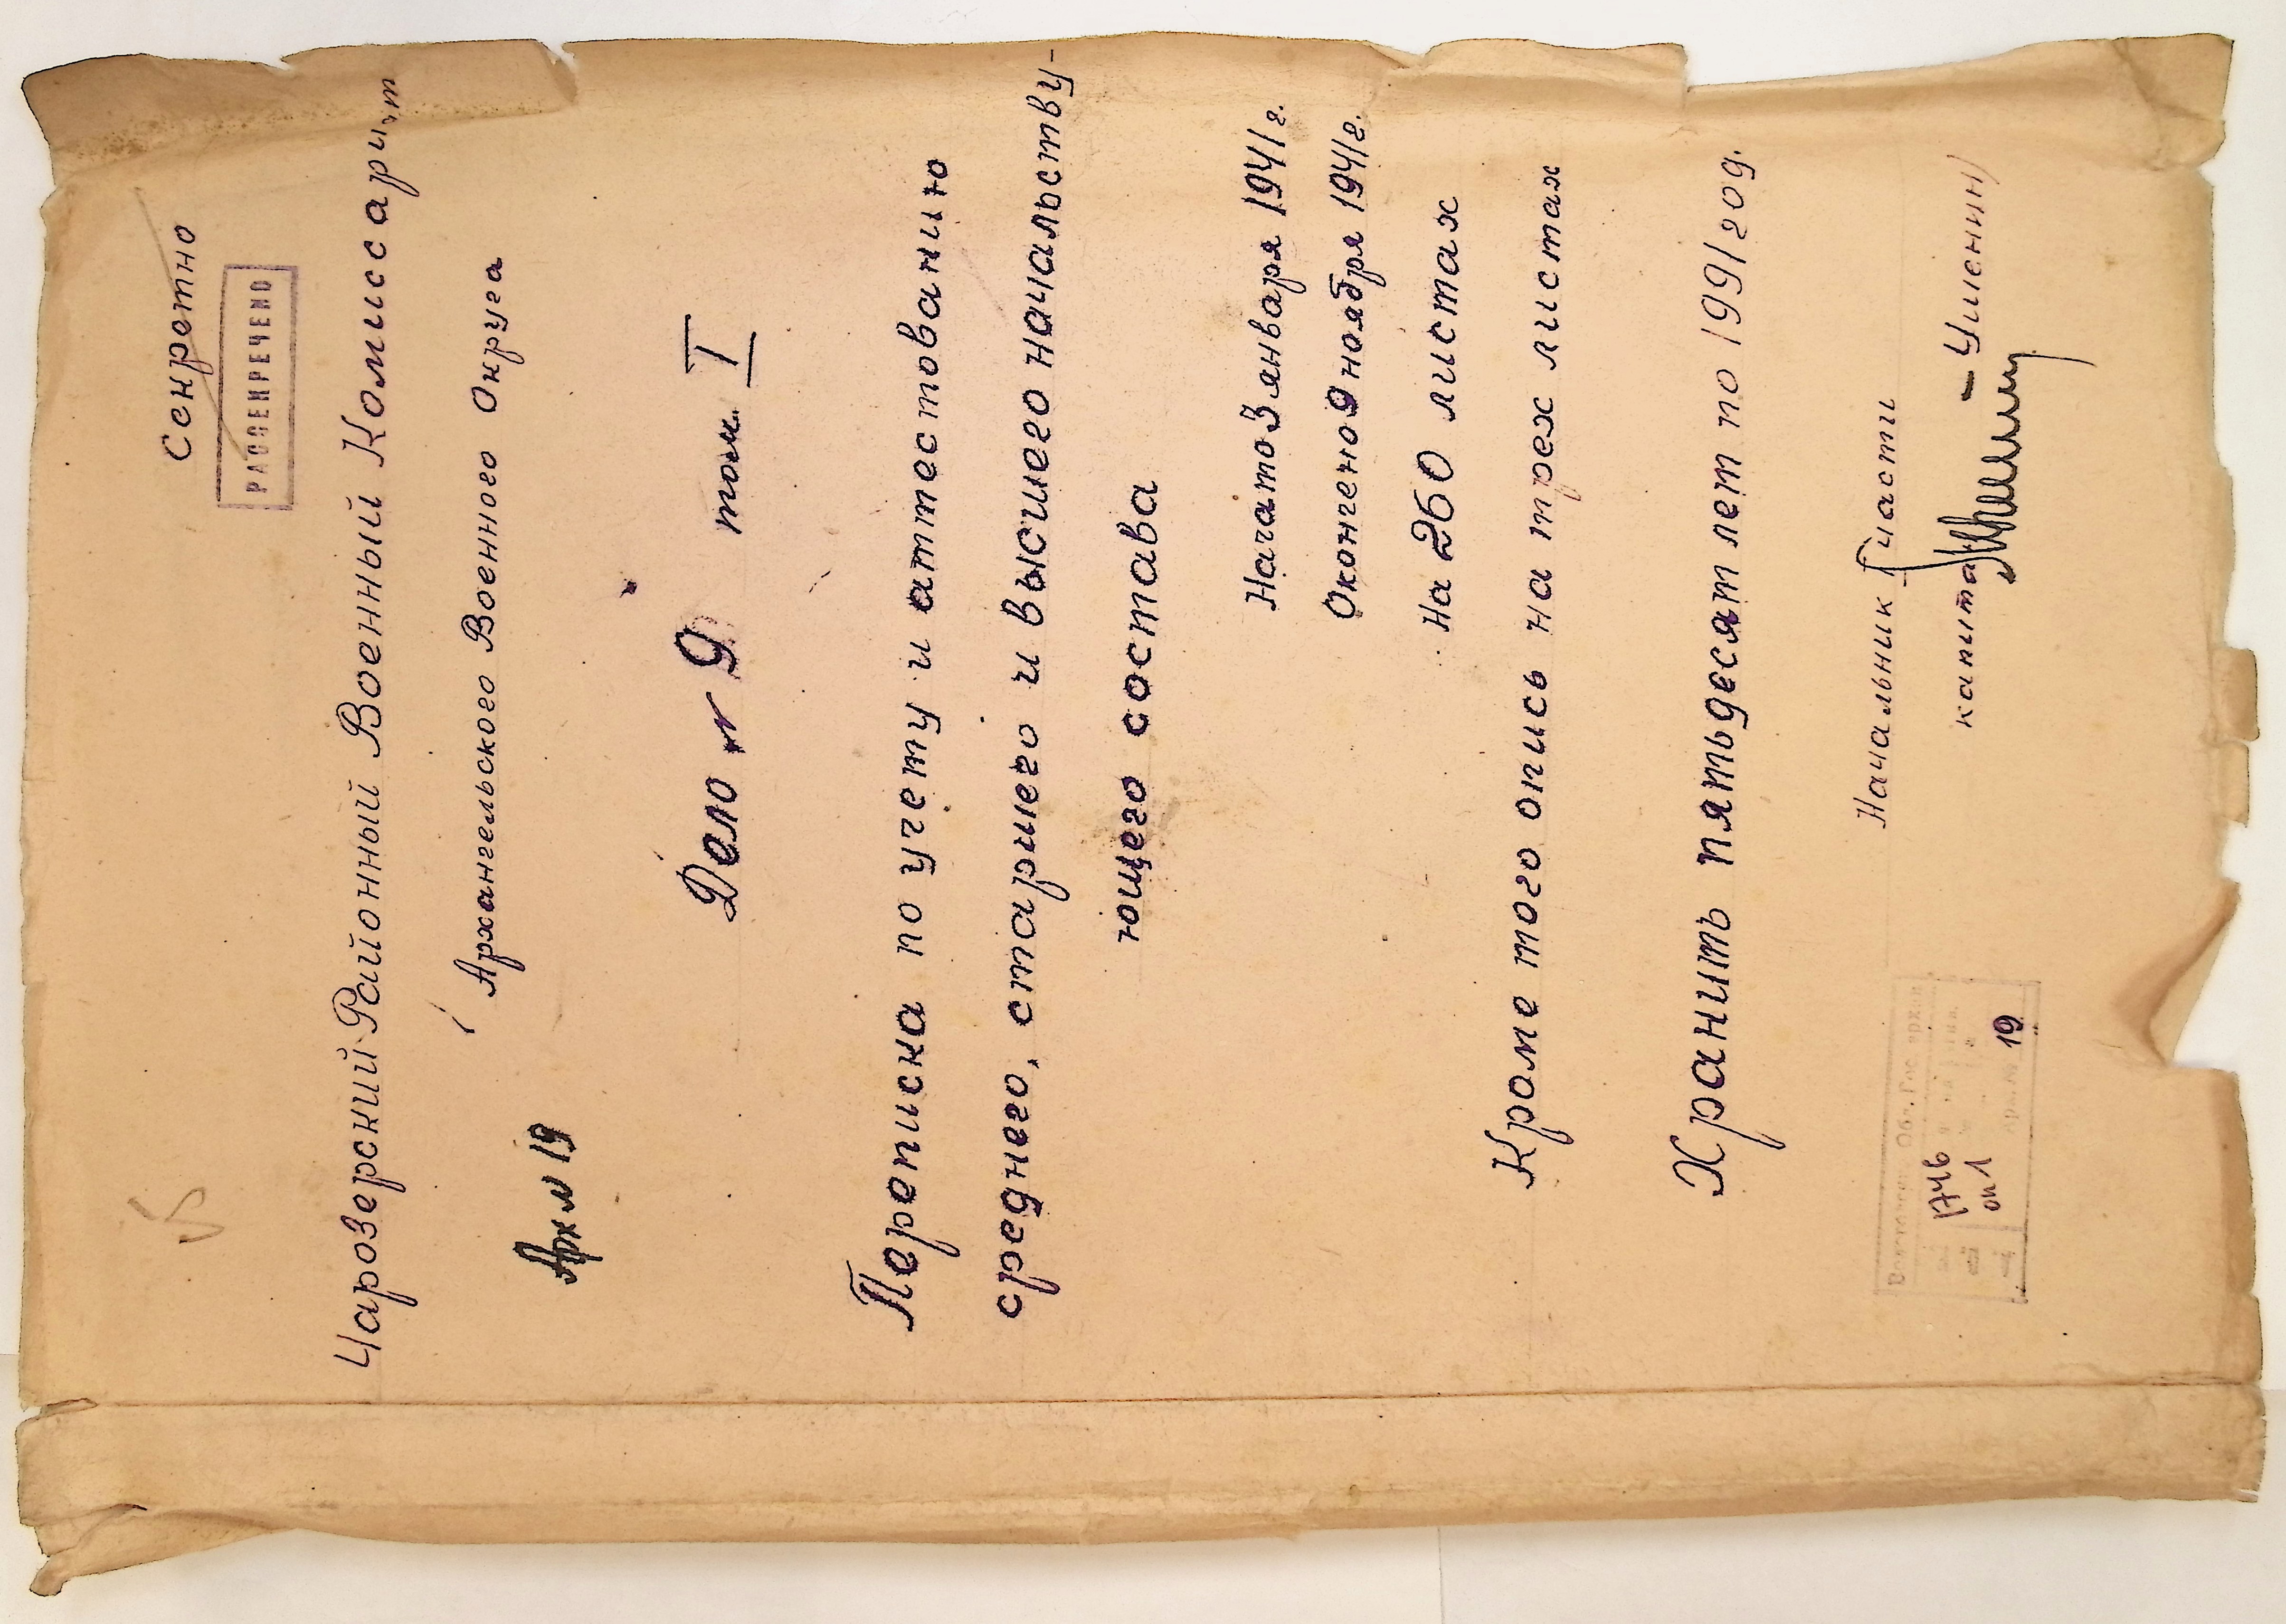 Секретно
РАССЕКРЕЧЕНО
Чарозерский Районный Военный Комиссариат
Архангельского Военного Округа
Арх № 19
Дело № 9 том I
Переписка по учету и аттестованию
среднего, старшего и высшего начальству-
ющего состава
Начато 3 января 1941 г.
Окончено 9 ноября 1941 г.
На 260 листах
Кроме того опись на трех листах
Хранить пятьдесят лет по 1991 год.
Начальник I части
капитан
Обл. Гос. архив
1746
оп 1
19